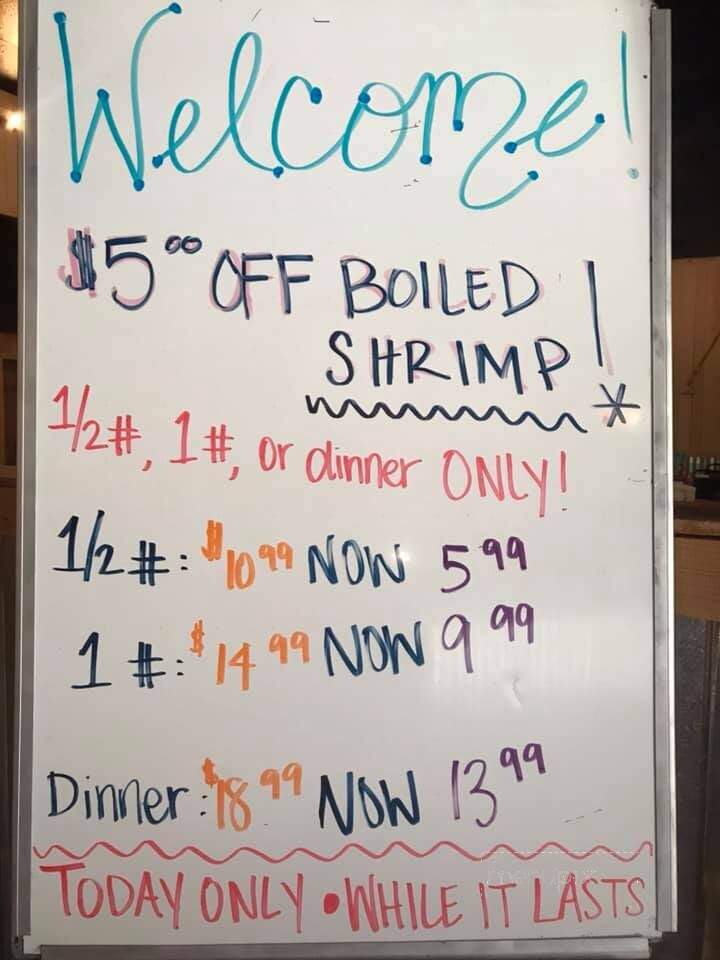 Welcome!
$5.00 OFF BOILED
SHRIMP! *
1/2#, 1#, or dinner ONLY!
1/2#: $10.99 NOW 5.99
1#: $14.99 NOW 9.99
Dinner: $18.99 NOW 13.99
TODAY ONLY • WHILE IT LASTS